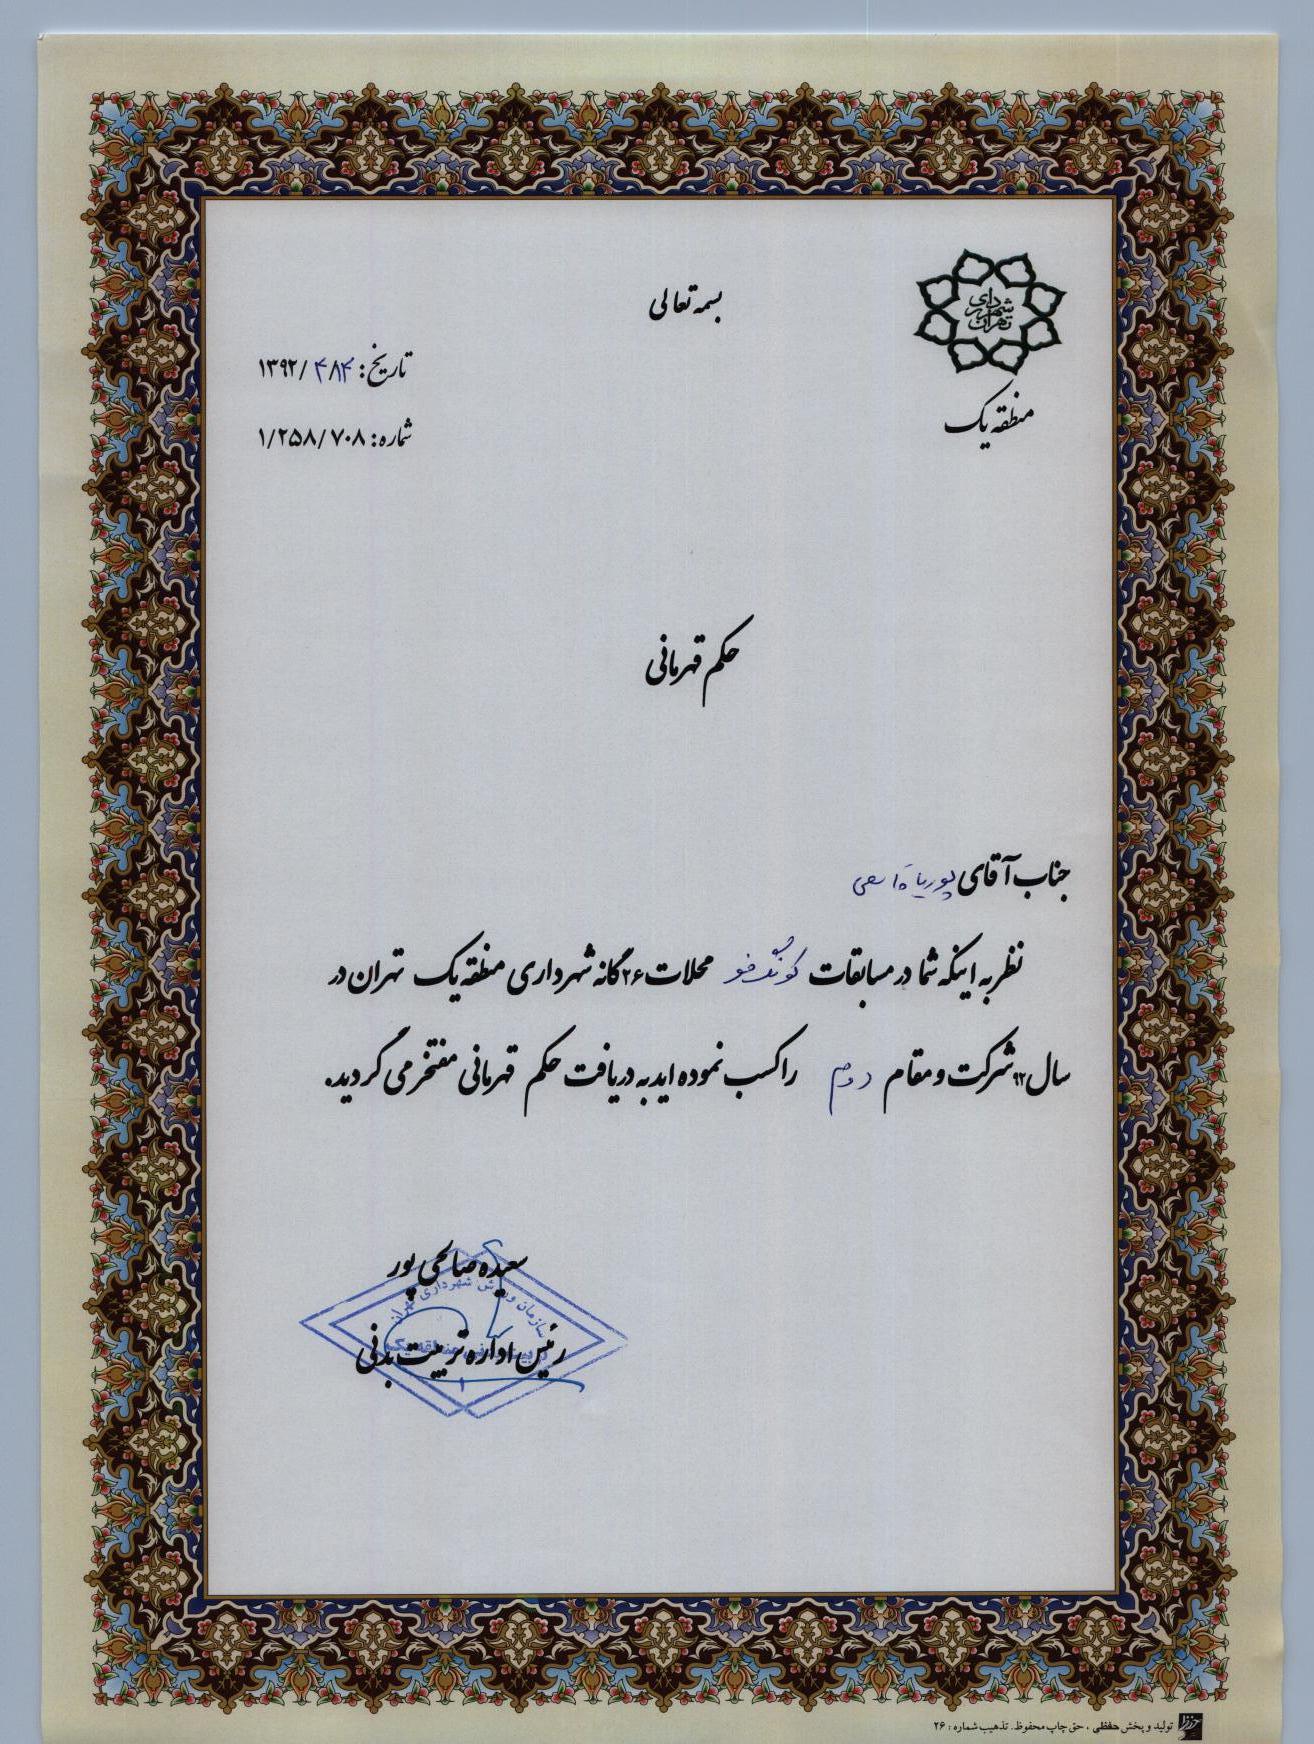 بسمه تعالی
شهرداری تهران
منطقه یک
تاریخ: ۱۳۹۲/۴/۴
شماره: ۱/۲۵۸/۷۰۸
حکم قهرمانی
جناب آقای پوریا
نظر به اینکه شما در مسابقات محلات ۲۶ گانه شهرداری منطقه یک تهران در
سال ۹۲ شرکت و مقام دوم را کسب نموده اید به دریافت حکم قهرمانی مفتخر می گردید.
سعیده صالحی پور
رئیس اداره تربیت بدنی
سازمان ورزش شهرداری تهران
تولید و پخش حفظی ، حق چاپ محفوظ. تذهیب شماره : ۲۶